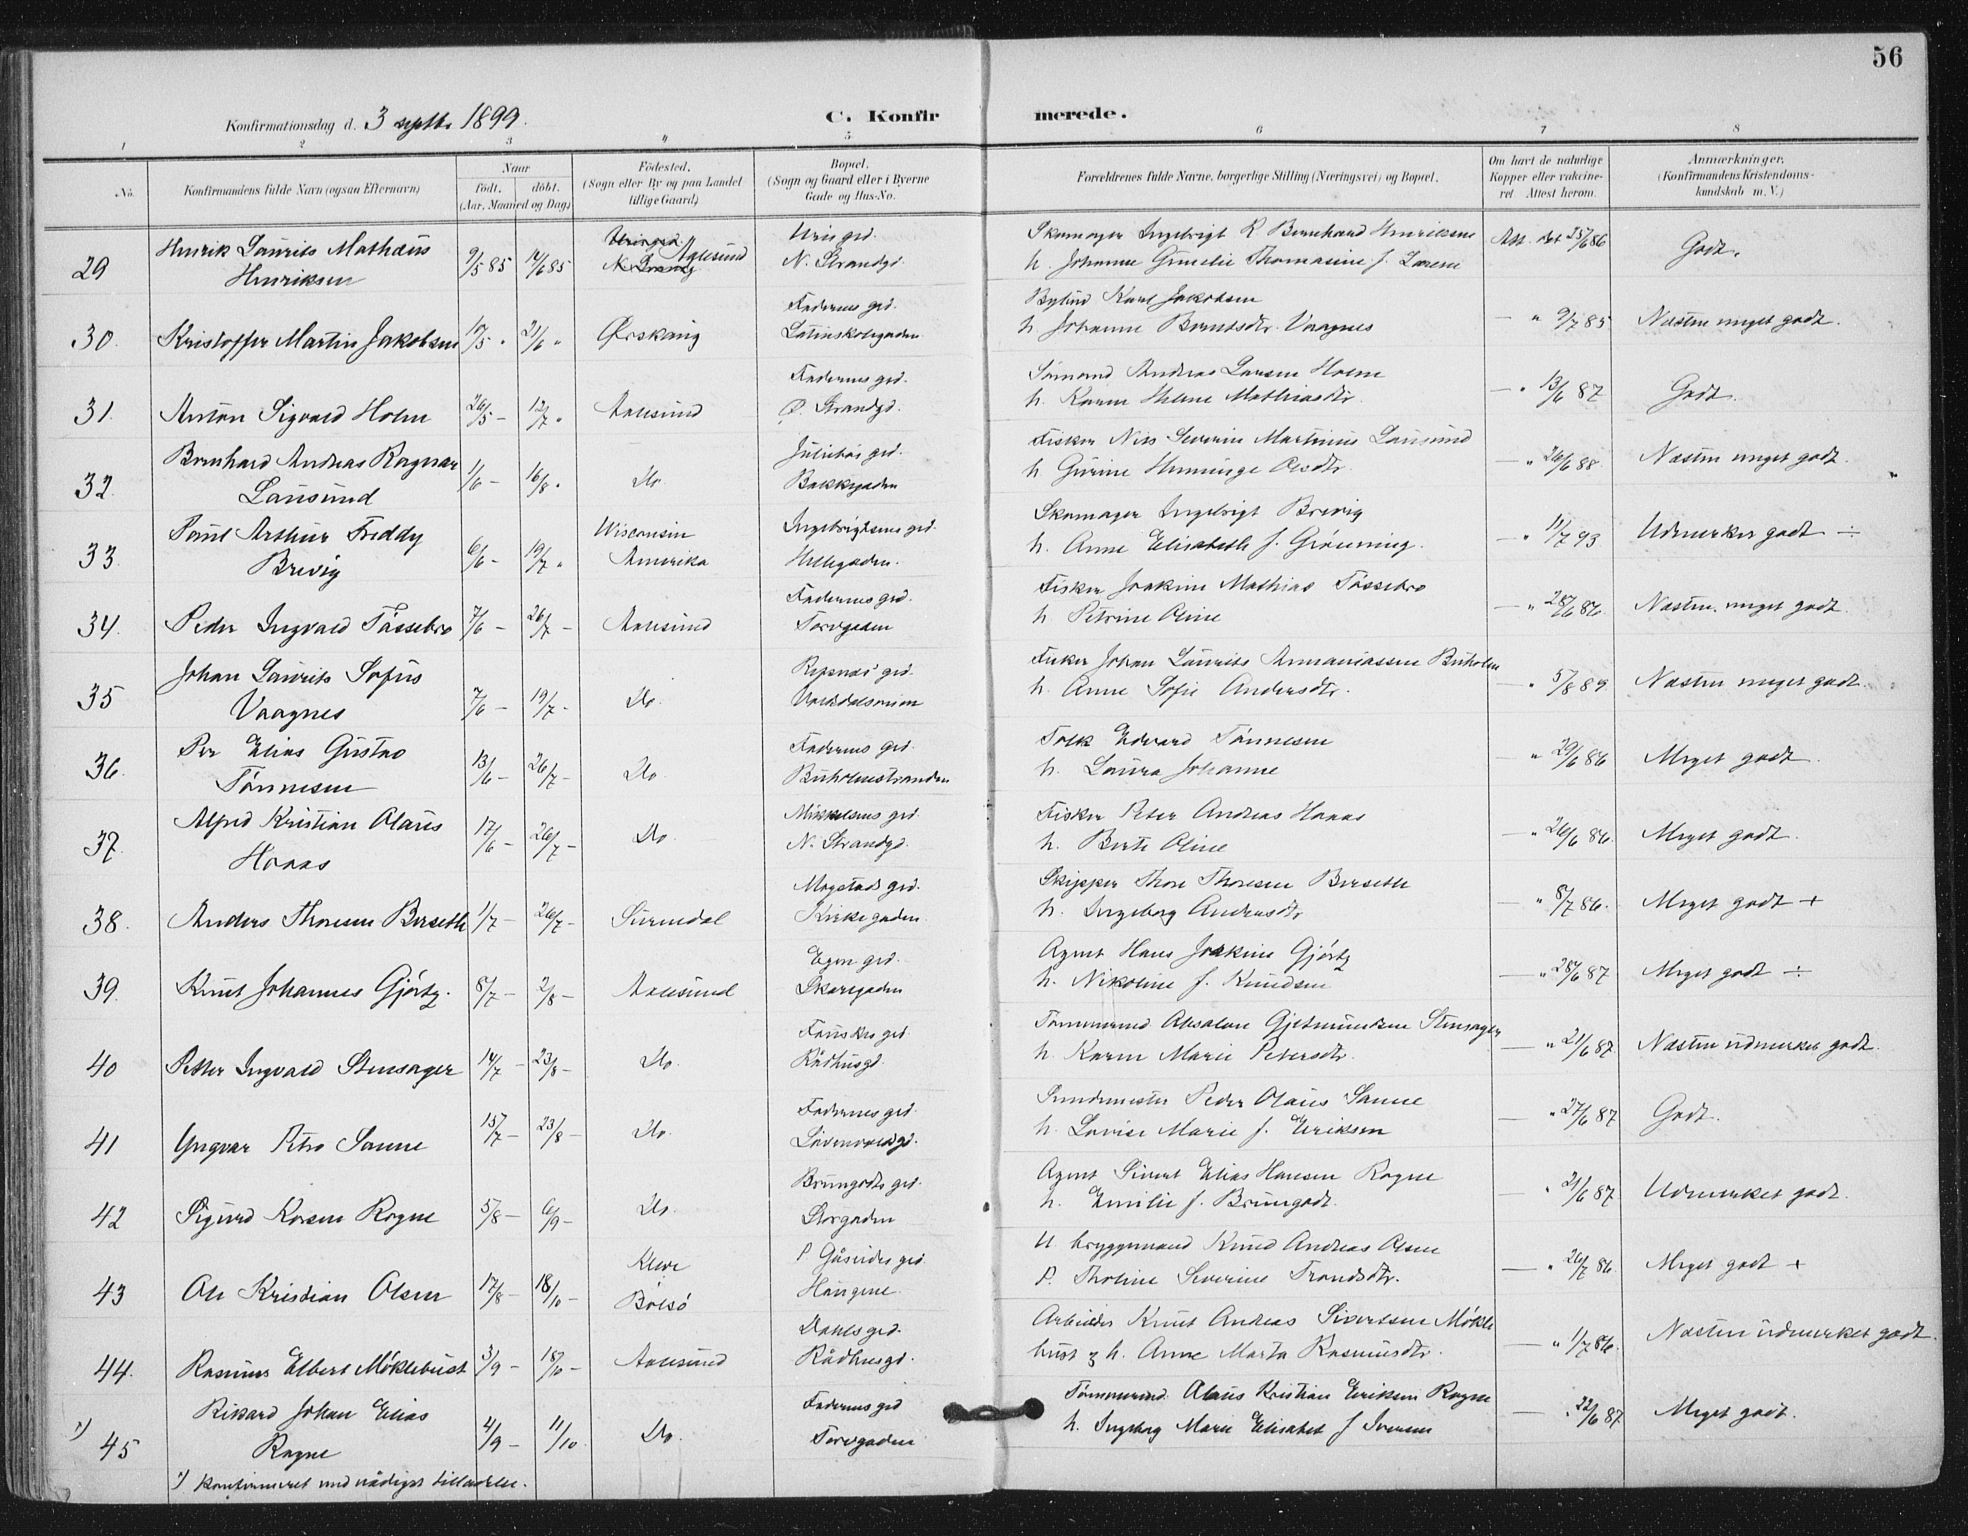 56
Konfirmationsdag d. 3 septbr 1899.
C. Konfirmerede.
1 2 3 4 5 6 7 8
No.
Konfirmandens fulde Navn (ogsaa Efternavn)
Naar
født. døbt.
(Aar, Maaned og Dag)
Fødested.
(Sogn eller By og paa Landet
tillige Gaard)
Bopæl.
(Sogn og Gaard eller i Byerne
Gade og Hus-No.
Forældrenes fulde Navne, borgerlige Stilling (Næringsvei) og Bopæl.
Om havt de naturlige
Kopper eller vakcine-
ret Attest herom.
Anmærkninger.
(Konfirmandens Kristendoms-
kundskab m. V.)
29
Henrik Laurits Mathæus
Henriksen
9/5 85
14/6 85
Aalesund
N. Strandgd.
Skomager Ingebrigt R Bernhard Henriksen
h. Johanne Thomasine f. Larsen
Att. det 25/6 86
Godt.
30.
Kristoffer Martin Jakobsen
17/5 "
21/6 "
Ørskoug
Faderens grd.
Latinskolegaden
Bybud Karl Jakobsen
h. Johanne Berntsdtr. Vaagnes
— " 9/7 85
Næsten meget godt.
31.
Anton Sigvald Holm
26/5 –
12/7 "
Aalesund
Faderens grd.
Ø. Strandgd.
Sømand Andreas Larsen Holm
h. Karen Helene Mathiasdtr.
— " 13/6 87
Godt.
32.
Bernhard Andreas Ragnar
Lausund
1/6 –
16/8 "
Do.
Bakkegaden
Fisker Nils Severin Martinus Lausund
h. Gurine Henninge Olsdtr.
— " 26/6 88
Næsten meget godt
33.
Paul Arthur Freddy
Brevig
6/6 –
19/7 "
Wisconsin
Amerika
Ingebrigtsens grd.
Hellegaden.
Skomager Ingebrigt Brevig
h. Anne Elisabeth f. Grønning.
— " 11/7 93
Udmerket godt ÷
34.
Peder Ingvald Tøssebro
7/6 –
26/7 –
Aalesund
Faderens grd.
Torvgaden
Fisker Joakim Mathias Tøssebro
h. Petrine Oline
— " 28/6 86.
Næsten meget godt
35
Johan Laurits Sofus
Vaagnes
7/6 –
19/7 –
Do.
Fisker Johan Laurits Annaniassen Buholm
h. Anne Sofie Andersdtr.
— " 5/8 89
Næsten meget godt.
36.
Per Elias Gustav
Tønnesen
13/6 –
26/7 –
Do.
Faderens grd.
Buholmstranden
Tolk Edvard Tønnesen
h. Laura Johanne
— " 29/6 86
Meget godt.
37.
Alfred Kristian Olaus
Honas
17/6 –
26/7 –
Do.
Mikkelsens grd.
N. Strandgd.
Fisker Peter Andreas Honas
h. Berte Oline
— " 26/6 86.
Meget godt.
38.
Anders Thoresen Berseth
1/7 –
26/7 –
Surendal
Mogstads grd.
Kirkegaden.
Skipper Thore Thoresen Berseth
h. Ingeborg Andersdtr
— " 8/7 86.
Meget godt +
39.
Knut Johannes Gjørtz.
8/7 –
2/8 –
Aalesund
Egen grd.
Skaregaden
Agent Hans Joakim Gjørtz
h. Nikoline f. Knudsen
— " 28/6 87
Meget godt ÷
40
Petter Ingvald Stensager
14/7 –
23/8 –
Do.
Rådhusgd
Tømmermd. Absalon Gjetmundsen Stensager
h. Karen Marie Petersdtr.
— " 21/6 87
Næsten udmerket godt.
41
Yngvar Petro Sanne
15/7 –
23/8 –
Do.
Faderenes grd.
Løvenvoldgd.
Peder Olaus Sanne
h. Lovise Marie f. Eriksen
— " 27/6 87
Godt.
42
Sigurd Korsen Rogne
5/8 –
6/9 –
Do.
Brungodts grd.
Storgaden
Agent Sivert Elias Hansen Rogne
h. Emilie f. Brungodt.
— " 21/6 87
Udmerket godt.
43
Ole Kristian Olsen
17/8 –
18/10 –
Kleve
Bolsø
P Gåseides grd.
Haugene.
U. bryggemand Knud Andreas Olsen
P. Tholine Severine Trondsdtr.
— " 26/7 86.
Meget godt +
44.
Rasmus Elbert Møklebust
3/9 –
18/10 –
Aalesund
Dahls grd.
Rådhusgd.
Arbeider Knut Andreas Sivertsen Møkle
bust & h. Anne Marta Rasmusdtr.
— " 1/7 86.
Næsten udmerket godt.
¹)
45
Rikard Johan Elias
Rogne
4/9 –
11/10
Do.
Faderens grd
Torvgaden
Tømmermd. Olaus Kristian Eriksen Rogne
h. Ingeborg Marie Elisabet f Iversen
— " 22/6 87
Meget godt.
¹) konfirmeret med nådigst tilladelse.